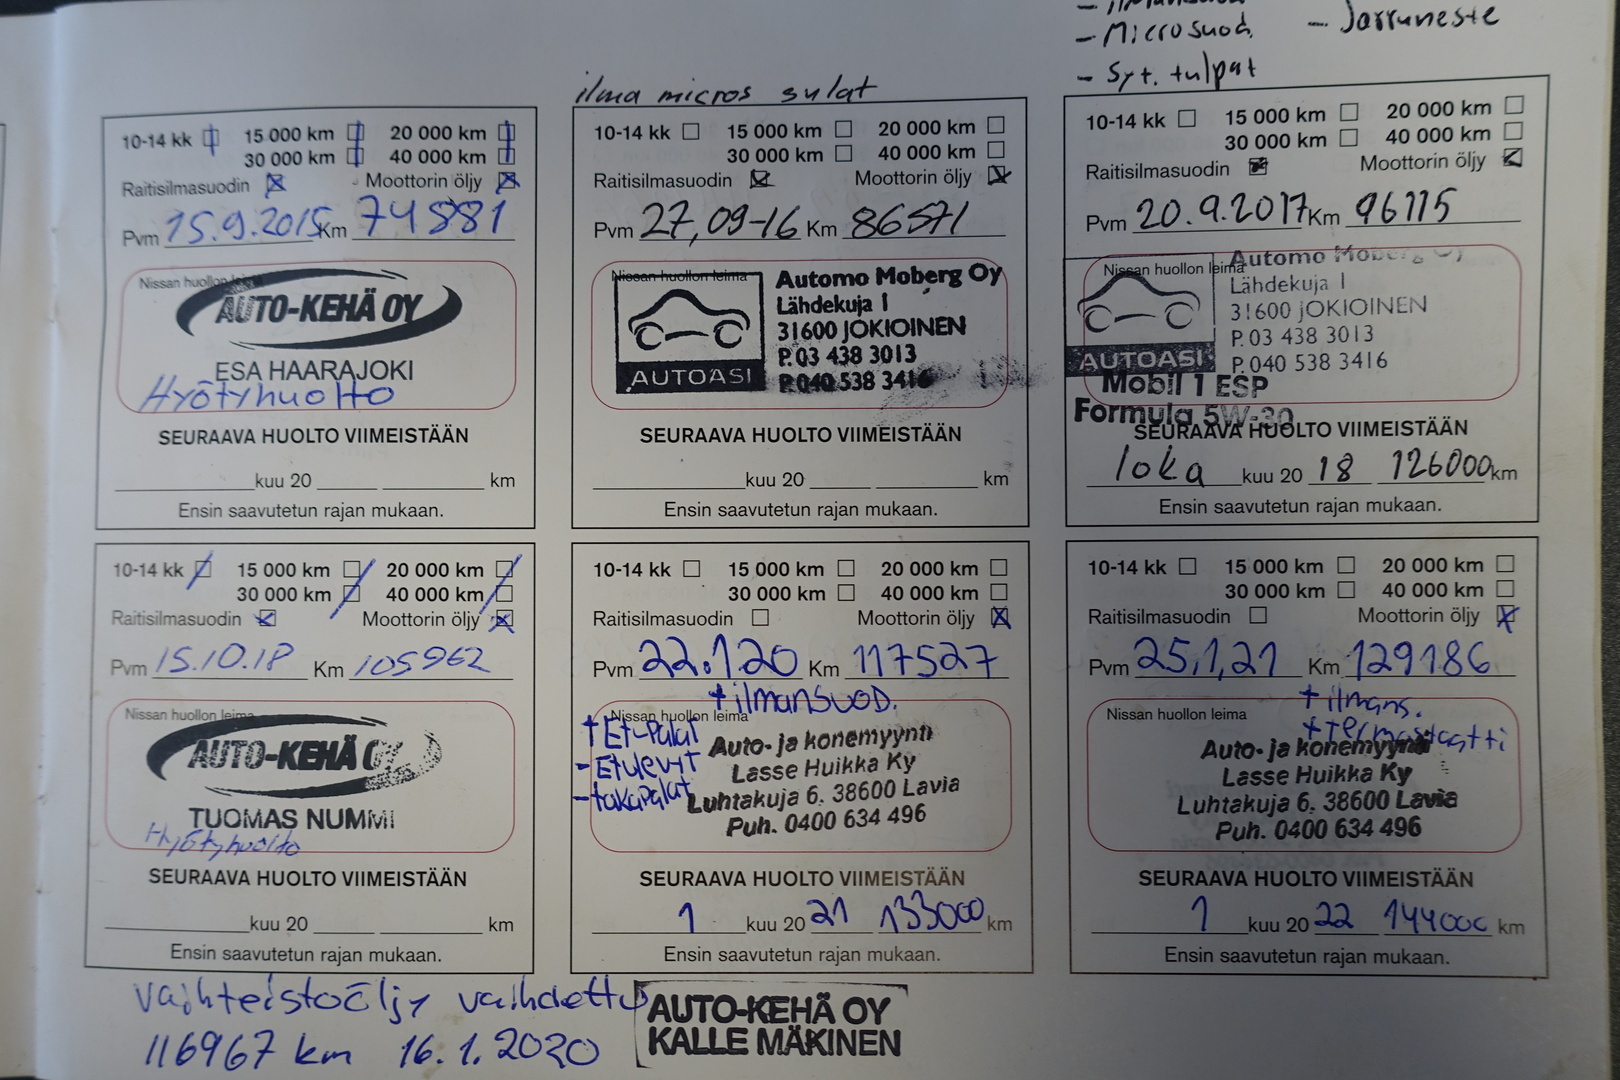 - Microsuod. - Jarruneste
- Syt. tulpat
ilma micros sulat
10-14 kk 15 000 km 20 000 km
30 000 km 40 000 km
Raitisilmasuodin Moottorin öljy
Pvm 15.9.2015 Km 74881
Nissan huollon leima
AUTO-KEHÄ OY
ESA HAARAJOKI
Hyötyhuolto
SEURAAVA HUOLTO VIIMEISTÄÄN
kuu 20 km
Ensin saavutetun rajan mukaan.
10-14 kk 15 000 km 20 000 km
30 000 km 40 000 km
Raitisilmasuodin Moottorin öljy
Pvm 27,09-16 Km 86571
Nissan huollon leima
AUTOASI
Automo Moberg Oy
Lähdekuja 1
31600 JOKIOINEN
P. 03 438 3013
P. 040 538 3416
SEURAAVA HUOLTO VIIMEISTÄÄN
kuu 20 km
Ensin saavutetun rajan mukaan.
10-14 kk 15 000 km 20 000 km
30 000 km 40 000 km
Raitisilmasuodin Moottorin öljy
Pvm 20.9.2017 Km 96115
Nissan huollon leima
AUTOASI
Automo Moberg Oy
Lähdekuja 1
31600 JOKIOINEN
P. 03 438 3013
P. 040 538 3416
Mobil 1 ESP
Formula 5W-30
SEURAAVA HUOLTO VIIMEISTÄÄN
loka kuu 20 18 126000 km
Ensin saavutetun rajan mukaan.
10-14 kk 15 000 km 20 000 km
30 000 km 40 000 km
Raitisilmasuodin Moottorin öljy
Pvm 15.10.18 Km 105962
Nissan huollon leima
AUTO-KEHÄ OY
TUOMAS NUMMI
Hyötyhuolto
SEURAAVA HUOLTO VIIMEISTÄÄN
kuu 20 km
Ensin saavutetun rajan mukaan.
10-14 kk 15 000 km 20 000 km
30 000 km 40 000 km
Raitisilmasuodin Moottorin öljy
Pvm 22.1.20 Km 117527
+ ilmansuod.
Nissan huollon leima
+ Et-Palat
- Etulevyt
- takapalat
Auto- ja konemyynti
Lasse Huikka Ky
Luhtakuja 6, 38600 Lavia
Puh. 0400 634 496
SEURAAVA HUOLTO VIIMEISTÄÄN
1 kuu 20 21 133000 km
Ensin saavutetun rajan mukaan.
10-14 kk 15 000 km 20 000 km
30 000 km 40 000 km
Raitisilmasuodin Moottorin öljy
Pvm 25,1,21 Km 129186
+ ilmans.
Nissan huollon leima
+ termostaatti
Auto- ja konemyynti
Lasse Huikka Ky
Luhtakuja 6, 38600 Lavia
Puh. 0400 634 496
SEURAAVA HUOLTO VIIMEISTÄÄN
1 kuu 20 22 144000 km
Ensin saavutetun rajan mukaan.
vaihteistoöljy vaihdettu
116967 km 16.1.2020
AUTO-KEHÄ OY
KALLE MÄKINEN